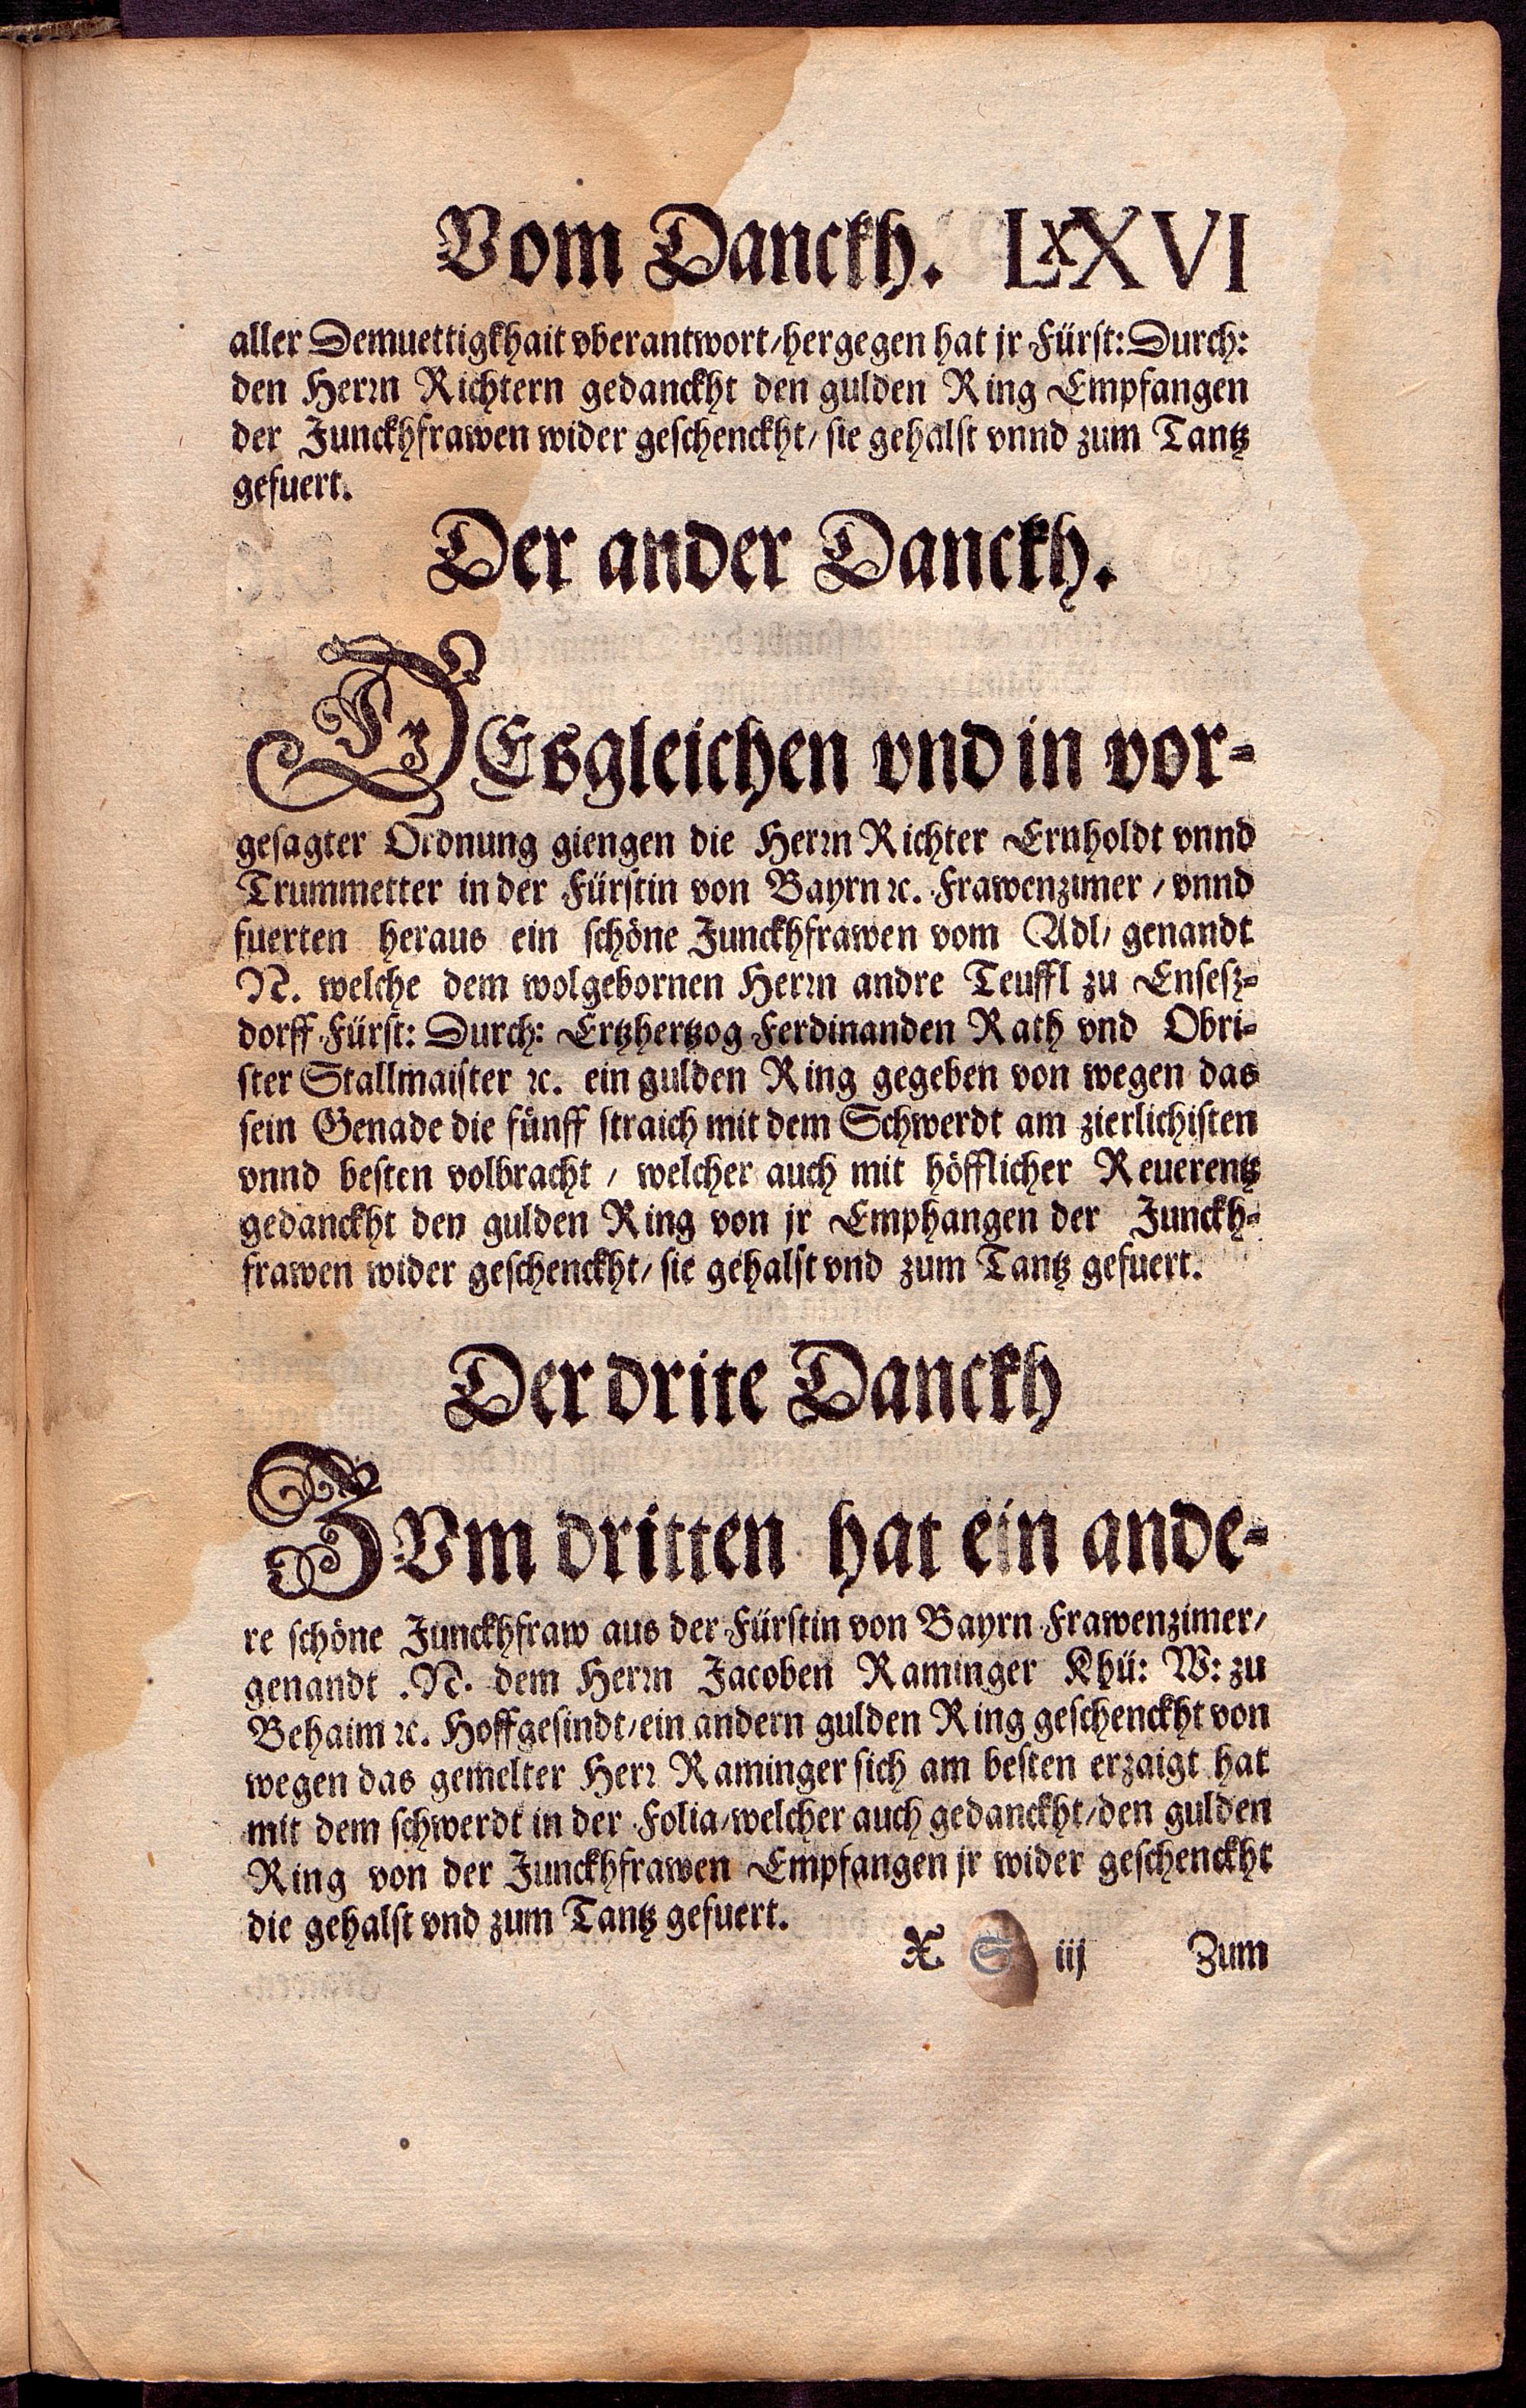 Vom Danckh. LXXVI
aller Demuettigkhait vberantwort/hergegen hat jr Fürst: Durch:
den Herrn Richtern gedanckht den gulden Ring Empfangen
der Junckhfrawen wider geschenckht/ sie gehalst vnnd zum Tantz
gefuert.
Der ander Danckh.
DEsgleichen vnd in vor-
gesagter Ordnung giengen die Herrn Richter Ernholdt vnnd
Trummetter in der Fürstin von Bayrn ꝛc. Frawenzimer / vnnd
fuerten heraus ein schöne Junckhfrawen vom Adl/ genandt
N. welche dem wolgebornen Herrn andre Teuffl zu Ensesz-
dorff Fürst: Durch: Ertzhertzog Ferdinanden Rath vnd Obri-
ster Stallmaister ꝛc. ein gulden Ring gegeben von wegen das
sein Genade die fünff straich mit dem Schwerdt am zierlichisten
vnnd besten volbracht / welcher auch mit höfflicher Reuerentz
gedanckht den gulden Ring von jr Emphangen der Junckh-
frawen wider geschenckht/ sie gehalst vnd zum Tantz gefuert.
Der drite Danckh
ZVm dritten hat ein ande-
re schöne Junckhfraw aus der Fürstin von Bayrn Frawenzimer/
genandt .N. dem Herrn Jacoben Raminger Khü: W: zu
Behaim ꝛc. Hoffgesindt/ein andern gulden Ring geschenckht von
wegen das gemelter Herr Raminger sich am besten erzaigt hat
mit dem schwerdt in der Folia/welcher auch gedanckht/den gulden
Ring von der Junckhfrawen Empfangen jr wider geschenckht
die gehalst vnd zum Tantz gefuert.
X S iij Zum